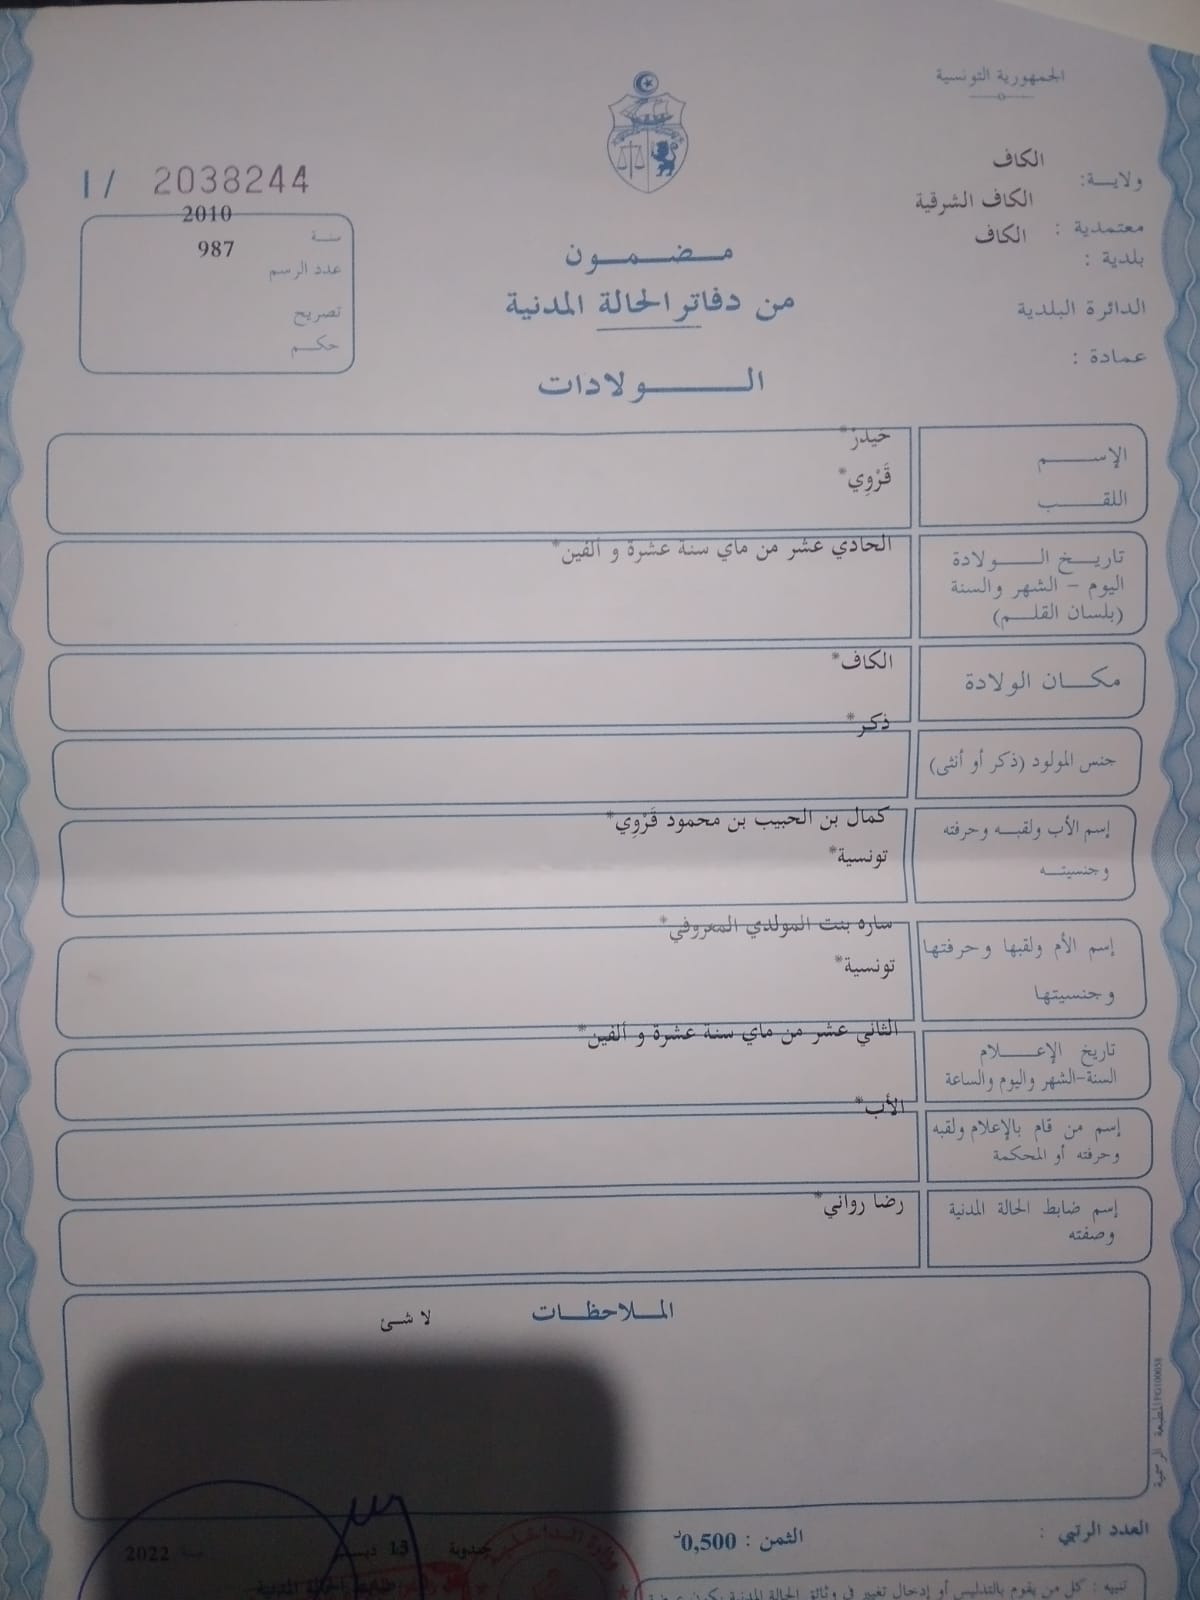 الجمهورية التونسية
ولايـــة: الكاف
معتمدية : الكاف الشرقية
بلدية : الكاف
الدائرة البلدية
عمادة :
I / 2038244
سنـة 2010
عدد الرسم 987
تصريح
حكـم
مـــضـــمـــون
من دفاتر الحالة المدنية
الـــــولادات
الإســــم حَيدرْ*
اللقـــب قَرْوِي*
تاريـــخ الـــــولادة
اليوم - الشهر والسنة
(بلسان القلـــم)
الحادي عشر من ماي سنة عشرة و ألفين*
مكـــان الولادة الكاف*
جنس المولود (ذكر أو أنثى) ذكر*
إسم الأب ولقبـه وحرفته
وجنسيتـــه
كمال بن الحبيب بن محمود قَرْوِي*
تونسية*
إسم الأم ولقبها وحرفتها
وجنسيتها
ساره بنت المولدي المعروفي*
تونسية*
تاريخ الإعــــلام
السنة-الشهر واليوم والساعة
الثاني عشر من ماي سنة عشرة و ألفين*
إسم من قام بالإعلام ولقبه
وحرفته أو المحكمة
الأب*
إسم ضابط الحالة المدنية
وصفته
رضا رواني*
المــلاحظــات
لا شئ
العدد الرتبي :
الثمن : 0,500د
جندوبة 13 ديسمبر سنة 2022
وزارة الـداخـلـيـة
ضابط الحالة المدنية
تنبيه : كل من يقوم بالتدليس أو إدخال تغيير في وثائق الحالة المدنية يكون عرضة
المطبعة الرسمية